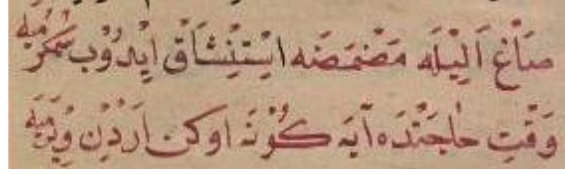 صَاغ اَلِيْلَه مَضْمَضَه اِسْتِنْشَاق اِيدُوب سُمْكُرْمَيَه
وَقْتِ حَاجَتْدَه آيَه كُونَه اوكن اَرْدِن وِيرْمَيَه